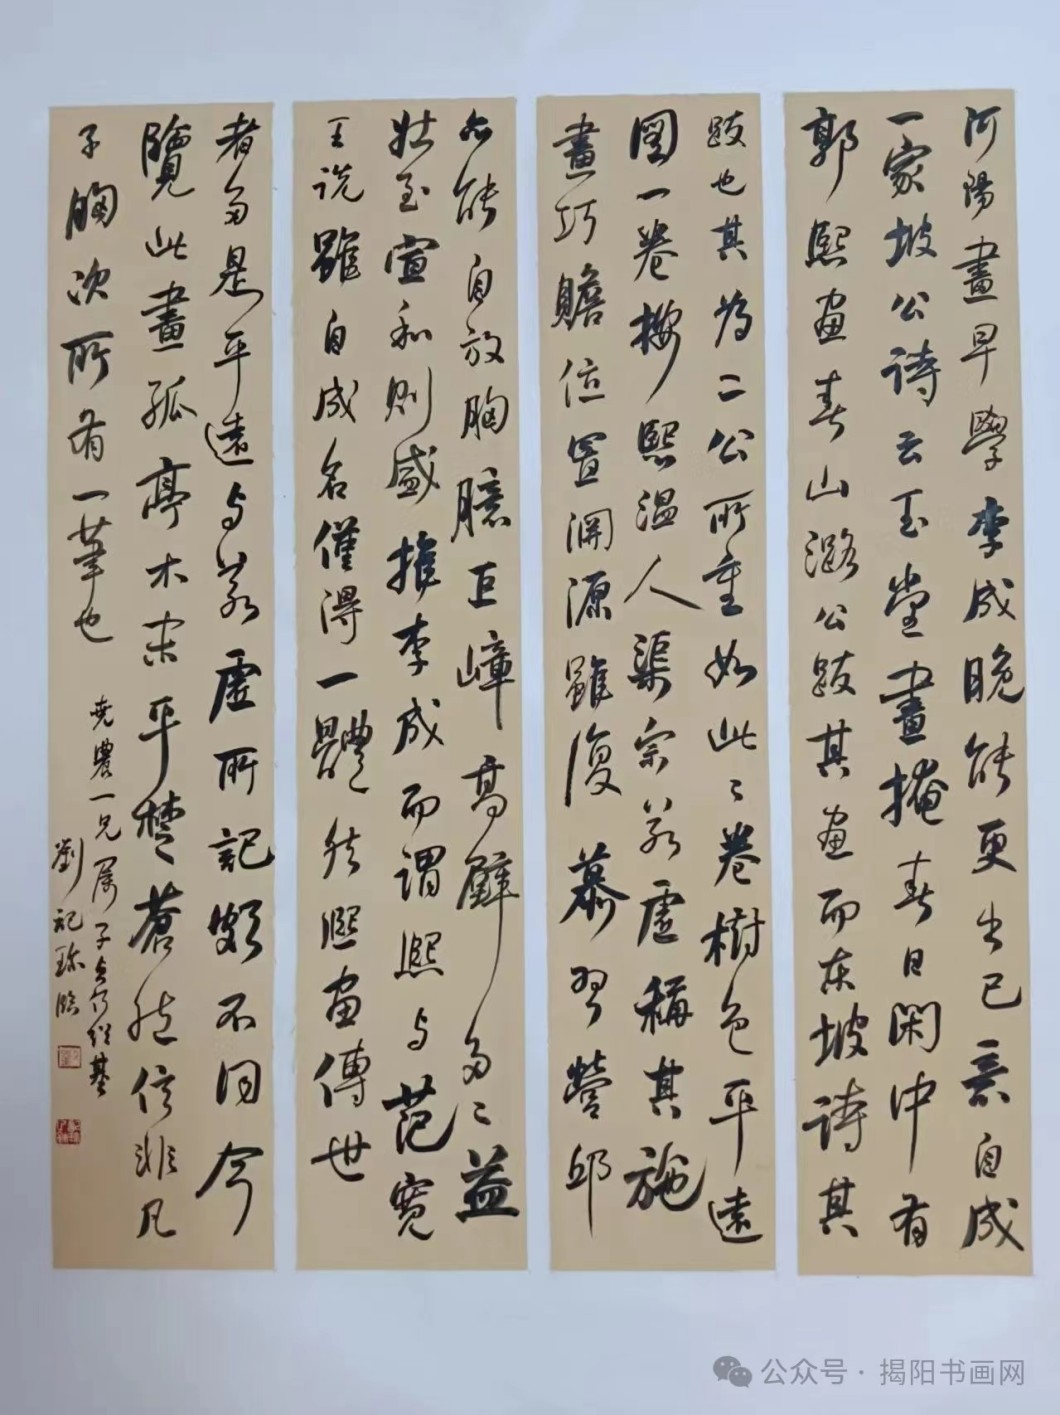 河陽畫早學李成晚能更出己意自成
一家坡公詩云玉堂畫掩春日閑中有
郭熙画春山潞公跋其画而东坡詩其
跋也其为二公所重如此〻卷樹色平遠
图一卷按熙温人渠宗若虚稱其施
畫巧贍位置渊源雖復慕习營邱
亦能自放胸臆巨嶂高壁多〻益
壮至宣和则盛推李成而謂熙与范宽
王诜雖自成名僅得一體然熙画傳世
者多是平遠与若虚所記頗不同今
覽此畫孤亭木末平楚蒼然信非凡
子胸次所有一筆也
尭農一兄属子貞何绍基
劉記珠临
公众号·揭阳书画网